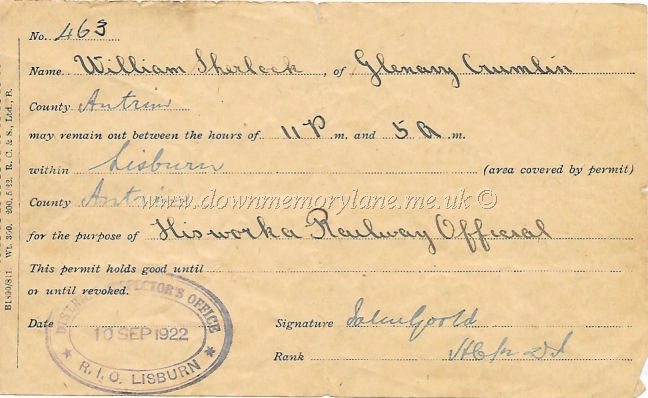 No. 463
Name William Sherlock, of Glenavy Crumlin
County Antrim
may remain out between the hours of 11 P.m. and 5 a.m.
within Lisburn (area covered by permit)
County Antrim
www.downmemorylane.me.uk ©
for the purpose of His work a Railway Official
This permit holds good until
or until revoked.
Date
DISTRICT INSPECTOR'S OFFICE
10 SEP 1922
R. I. O. LISBURN
Signature
Rank
B1890/811. Wt. 300. 200, 5/22. R. C. & S., Ltd., B.